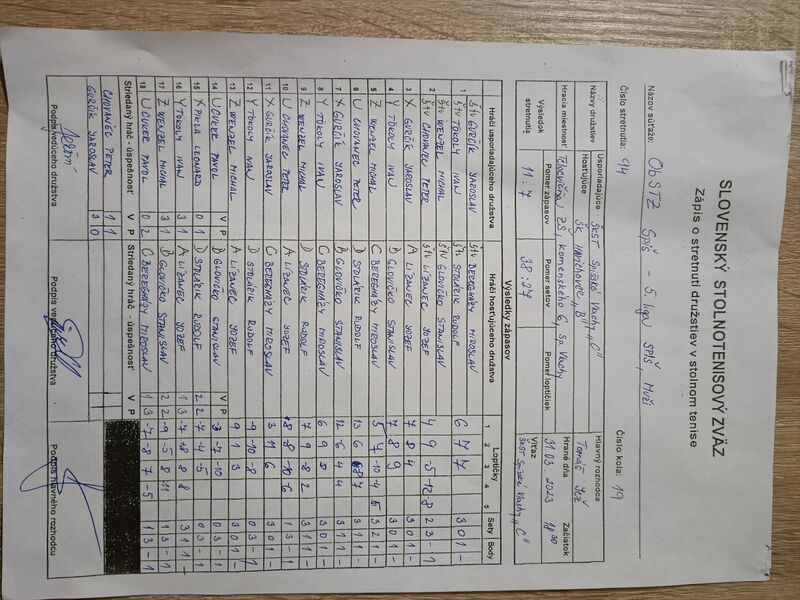 SLOVENSKÝ STOLNOTENISOVÝ ZVÄZ
Zápis o stretnutí družstiev v stolnom tenise
Názov súťaže: ObSTZ Spiš - 5. liga SPIŠ, muži
Číslo stretnutia: 94 Číslo kola: 19
Názvy družstiev Usporiadajúce ŠKST Spišské Vlachy "C" Hlavný rozhodca
Hosťujúce ŠK HARICHOVCE "B" Tomáš
Hracia miestnosť Telocvičňa ZŠ, Komenského 6, Sp. Vlachy Hrané dňa 31.03 2023 Začiatok 18 30
Výsledok stretnutia 11:7 Pomer zápasov Pomer setov 38:27 Pomer loptičiek Víťaz ŠKST Spišské Vlachy "C"
Výsledky zápasov
Hráči usporiadajúceho družstva Hráči hosťujúceho družstva Loptičky Sety Body
1 2 3 4 5
1 Štv GURČÍK JAROSLAV Štv BEREGHAZY MIROSLAV
Štv TÖKÖLY IVAN Štv STOLÁRIK RUDOLF 6 7 7 3 0 1 -
2 Štv WENZEL MICHAL Štv GLOVIČKO STANISLAV
Štv CHOVANEC PETER Štv LIZANEC JOZEF 4 9 -5 -12 -8 2 3 - 1
3 X GURČÍK JAROSLAV A LIZANEC JOZEF 7 8 4 3 0 1 -
4 Y TÖKÖLY IVAN B GLOVIČKO STANISLAV 7 8 9 3 0 1 -
5 Z WENZEL MICHAL C BEREGHAZY MIROSLAV 5 7 -10 -4 5 3 2 1 -
6 U CHOVANEC PETER D STOLÁRIK RUDOLF 3 1 1 -
7 X GURČÍK JAROSLAV B GLOVIČKO STANISLAV 12 -6 4 4 3 1 1 -
8 Y TÖKÖLY IVAN C BEREGHAZY MIROSLAV 6 9 8 3 0 1 -
9 Z WENZEL MICHAL D STOLÁRIK RUDOLF 7 9 -8 2 3 1 1 -
10 U CHOVANEC PETER A LIZANEC JOZEF 8 -8 -10 -6 1 3 - 1
11 X GURČÍK JAROSLAV C BEREGHAZY MIROSLAV 3 11 6 3 0 1 -
12 Y TÖKÖLY IVAN D STOLÁRIK RUDOLF -9 -10 -8 0 3 - 1
13 Z WENZEL MICHAL A LIZANEC JOZEF 9 1 3 3 0 1 -
14 U CUKER PAVOL V P B GLOVIČKO STANISLAV V P -3 -7 -10 0 3 - 1
15 X PIKLA LEONARD 0 1 D STOLÁRIK RUDOLF 2 2 -7 -4 -5 0 3 - 1
16 Y TÖKÖLY IVAN 3 1 A LIZANEC JOZEF 1 3 -7 8 8 8 3 1 1 -
17 Z WENZEL MICHAL 3 1 B GLOVIČKO STANISLAV 2 2 -9 5 8 3 1 1 -
18 U CUKER PAVOL 0 2 C BEREGHAZY MIROSLAV 1 3 -7 -8 7 -5 1 3 - 1
Striedaný hráč - úspešnosť V P Striedaný hráč - úspešnosť V P
CHOVANEC PETER 1 1
GURČÍK JAROSLAV 3 0
Podpis vedúceho družstva Podpis vedúceho družstva Podpis hlavného rozhodcu